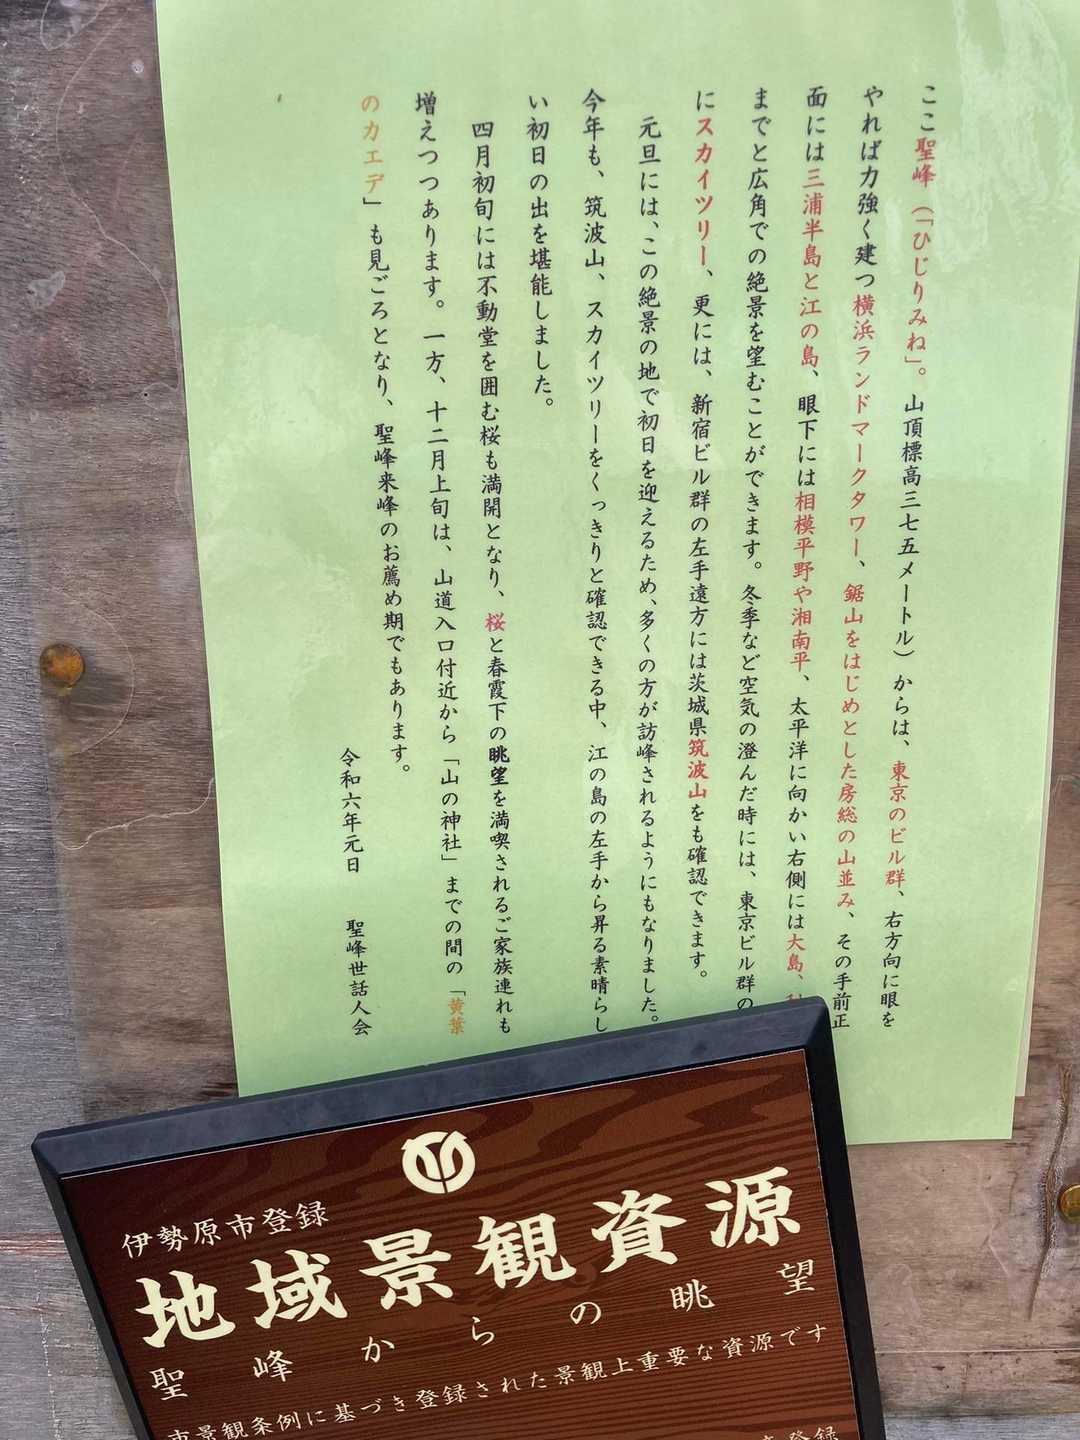 ここ聖峰(「ひじりみね」。山頂標高三七五メートル)からは、東京のビル群、右方向に眼を
やれば力強く建つ横浜ランドマークタワー、鋸山をはじめとした房総の山並み、その手前正
面には三浦半島と江の島、眼下には相模平野や湘南平、太平洋に向かい右側には大島、
までと広角での絶景を望むことができます。冬季など空気の澄んだ時には、東京ビル群の
にスカイツリー、更には、新宿ビル群の左手遠方には茨城県筑波山をも確認できます。
元旦には、この絶景の地で初日を迎えるため、多くの方が訪峰されるようにもなりました。
今年も、筑波山、スカイツリーをくっきりと確認できる中、江の島の左手から昇る素晴らし
い初日の出を堪能しました。
四月初旬には不動堂を囲む桜も満開となり、桜と春霞下の眺望を満喫されるご家族連れも
増えつつあります。一方、十二月上旬は、山道入口付近から「山の神社」までの間の「黄葉
のカエデ」も見ごろとなり、聖峰来峰のお薦め期でもあります。
令和六年元日 聖峰世話人会
伊勢原市登録
地域景観資源
聖峰からの眺望
市景観条例に基づき登録された景観上重要な資源です
登録